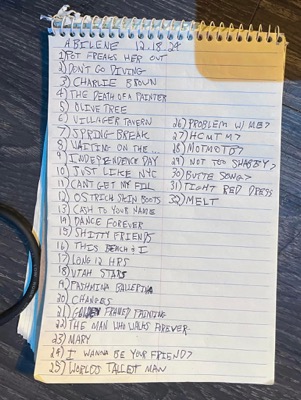 ABILENE 12.18.24
1) POT FREAKS HER OUT
2) DON'T GO DIVING
3) CHARLIE BROWN
4) THE DEATH OF A PAINTER
5) OLIVE TREE
6) VILLAGER TAVERN
7) SPRING BREAK
8) WAITING ON THE...
9) INDEPENDENCE DAY
10) JUST LIKE NYC
11) CAN'T GET MY FILL
12) OSTRICH SKIN BOOTS
13) CASH TO YOUR NAME
14) DANCE FOREVER
15) SHITTY FRIENDS
16) THIS BEACH & I
17) LONG 12 HRS
18) UTAH STARS
19) PASHMINA BALLERINA
20) CHANGES
21) GOLDEN FRAMED PAINTING
22) THE MAN WHO WALKS FOREVER
23) MARY
24) I WANNA BE YOUR FRIEND?
25) WORLDS TALLEST MAN
26) PROBLEM W/ ME?
27) HCMTM?
28) MOTMOTO?
29) NOT TOO SHABBY?
30) BUTTE SONG?
31) TIGHT RED DRESS
32) MELT